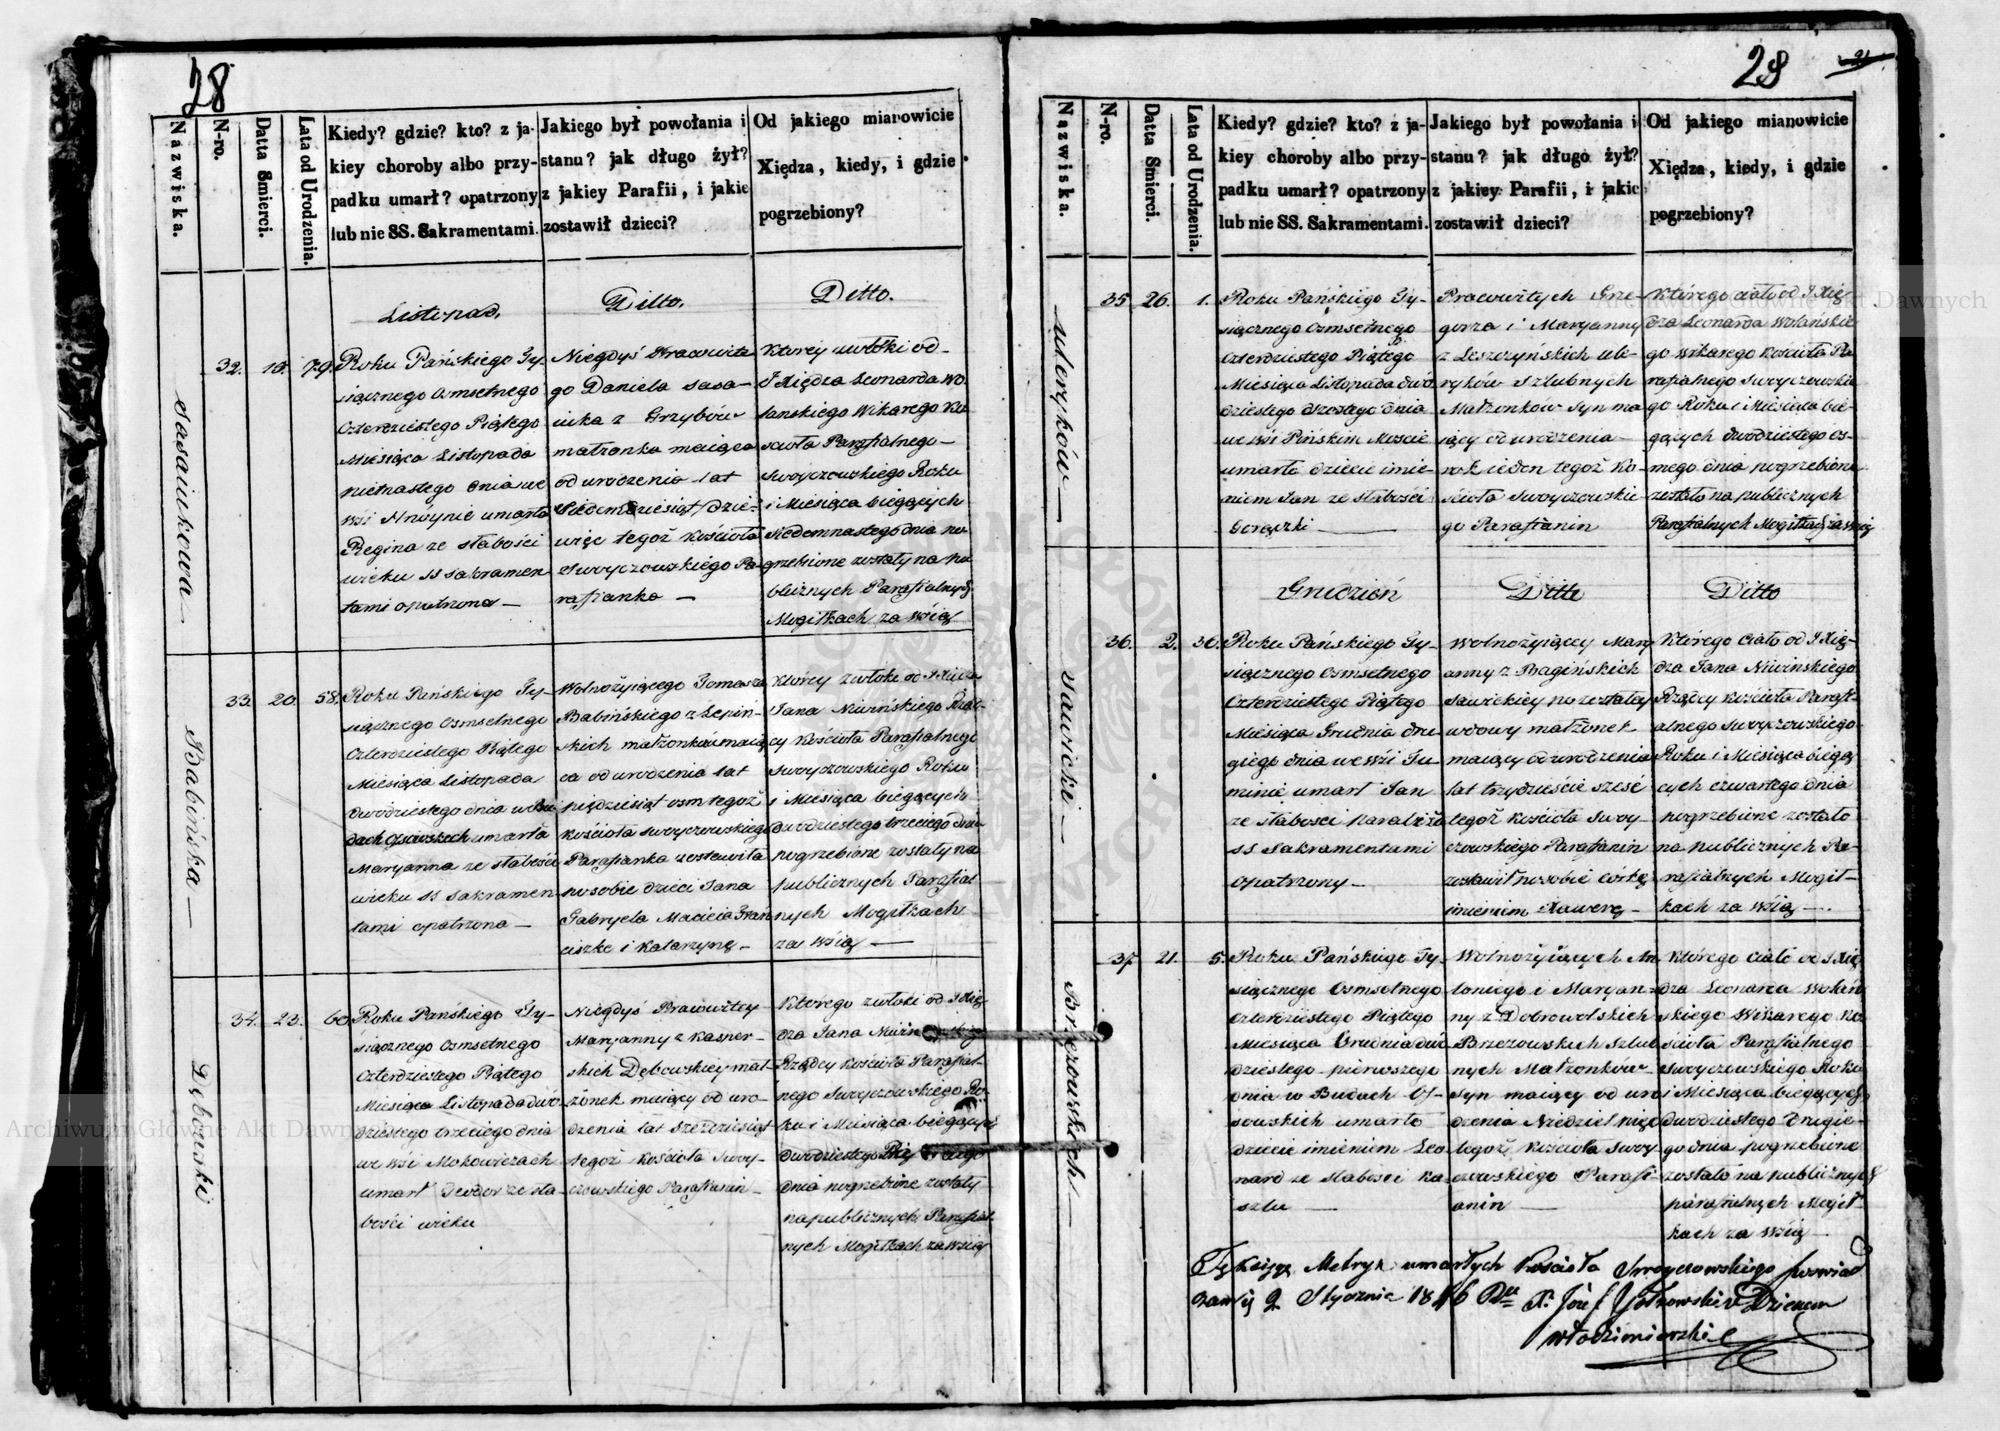 28
Nazwiska.
N-ro.
Datta Smierci.
Lata od Urodzenia.
Kiedy? gdzie? kto? z ja-
kiey choroby albo przy-
padku umarł? opatrzony
lub nie SS. Sakramentami.
Jakiego był powołania i
stanu? jak długo żył?
z jakiey Parafii, i jakie
zostawił dzieci?
Od jakiego mianowicie
Xiędza, kiedy, i gdzie
pogrzebiony?
Listopad.
Ditto.
Ditto.
Sasaiukowa
32.
79.
Roku Pańskiego Ty-
siącznego Osmsetnego
Czterdziestego Piątego
Miesiąca Listopada
pietnastego dnia we
wsi umarła
Regina ze słabości
wieku SS Sakramen
tami opatrzona
Niegdyś Pracowite
go Daniela Sasa-
iuka z Grzybów
małżonka maiąca
od urodzenia lat
Siedmdziesiąt dzie-
więc tegoż Kościoła
Swoyczowskiego Pa-
rafianka
Ktorey zwłoki od
J Xiędza Leonarda Wo
lanskiego Wikarego Ko
scioła Parafialnego
Swoyczowskiego Roku
i Miesiąca biegących
siedemnastego dnia po
grzebione zostały na pu
blicznych Parafialnych
Mogiłkach za wsią
Babińska
33.
20.
58.
Roku Pańskiego Ty-
siącznego Osmsetnego
Czterdziestego Piątego
Miesiąca Listopada
dwudziestego dnia w Bu
dach Ossowskich umarła
Maryanna ze słabości
wieku SS Sakramen
tami opatrzona
Wolnożyiącego Tomasza
Babińskiego z Lepin-
skich małżonka maią
ca od urodzenia lat
pięćdziesiąt osm tegoż
Kościoła Swoyczowskiego
Parafianka zostawiła
po sobie dzieci Jana
Gabryela Macieia Fran
ciszke i Katarzynę
Którey zwłoki od J Xiędza
Jana Niwińskiego Rząd-
cy Kościoła Parafialnego
Swoyczowskiego Roku
i Miesiąca biegących
dwudziestego trzeciego dnia
pogrzebione zostały na
publicznych Parafial
nych Mogiłkach
za wsią
Dębowski
34.
23.
60.
Roku Pańskiego Ty-
siącznego Osmsetnego
Czterdziestego Piątego
Miesiąca Listopada dwó
dziestego trzeciego dnia
we wsi Mokowiczach
umarł Teodor ze sła
bości wieku
Niegdyś Pracowitey
Maryanny z Kasper-
skich Dębowskiey mał
żonek maiący od uro-
dzenia lat sześćdziesiąt
tegoż Kościoła Swoy-
czowskiego Parafianin
Ktorego zwłoki od J Xię
dza Jana
Rządcy Kościoła Parafial-
nego Swoyczowskiego Ro-
ku i Miesiąca biegących
dwudziestego
dnia pogrzebione zostały
na publicznych Parafial
nych Mogiłkach za wsią
29
Nazwiska.
N-ro.
Datta Smierci.
Lata od Urodzenia.
Kiedy? gdzie? kto? z ja-
kiey choroby albo przy-
padku umarł? opatrzony
lub nie SS. Sakramentami.
Jakiego był powołania i
stanu? jak długo żył?
z jakiey Parafii, i jakie
zostawił dzieci?
Od jakiego mianowicie
Xiędza, kiedy, i gdzie
pogrzebiony?
Uleryków
35.
26.
1.
Roku Pańskiego Ty-
siącznego Osmsetnego
Czterdziestego Piątego
Miesiąca Listopada dwó
dziestego szostego dnia
we wsi Pińskim Moscie
umarło dziecie imie-
niem Jan ze słabości
Gorączki
Pracowitych Grze-
gorza i Maryanny
z Leszczyńskich Ule-
ryków Szlubnych
Małżonków Syn ma
iący od urodzenia
rok ieden tegoż Ko-
ścioła Swoyczowskie
go Parafianin
Którego ciało od J Xię
dza Leonarda Wolańskie
go Wikarego Kościoła Pa
rafialnego Swoyczowskie
go Roku i Miesiąca bie-
gących dwudziestego os-
mego dnia pogrzebione
zostało na publicznych
Parafialnych Mogiłkach za wsią
Grudzień
Ditto
Ditto
Sawicki
36.
2.
36.
Roku Pańskiego Ty-
siącznego Osmsetnego
Czterdziestego Piątego
Miesiąca Grudnia dru-
giego dnia we wsi Tu-
minie umarł Jan
ze słabosci paraliżu
SS Sakramentami
opatrzony
Wolnożyiącey Mary
anny z Bagińskich
Sawickiey pozostałey
wdowy małżonek
maiący od urodzenia
lat trzydzieście szesć
tegoż Kościoła Swoy-
czowskiego Parafianin
zostawił po sobie corkę
imieniem Xawerę
Ktorego Ciało od J Xię-
dza Jana Niwińskiego
Rządcy Kościoła Parafi-
alnego Swoyczowskiego
Roku i Miesiąca biegą
cych czwartego dnia
pogrzebione zostało
na publicznych Pa-
rafialnych Mogił-
kach za wsią
Brzezowskich
37.
21.
5.
Roku Pańskiego Ty-
siącznego Osmsetnego
Czterdziestego Piątego
Miesiąca Grudnia dwó
dziestego pierwszego
dnia w Budach Os-
sowskich umarło
dziecie imieniem Leo
nard ze słabosci Ka
szlu
Wolnożyiących An
toniego i Maryan-
ny z Dobrowolskich
Brzezowskich Szlub
nych Małżonków
Syn maiący od uro
dzenia Niedziel pięc
tegoż Kościoła Swoy
czowskiego Parafi-
anin
Którego ciało od J Xię
dza Leonarda Wolań
skiego Wikarego Ko
ścioła Parafialnego
Swoyczowskiego Roku
i Miesiąca bieganych
dwudziestego Drugie-
go dnia pogrzebione
zostało na publicznych
parafialnych Mogił-
kach za wsią
Tę Xsięgę Metryk umarłych Kościoła Swoyczowskiego poswiad
czam 9 Stycznia 1846 X. Józef Dziekan
Włodzimierski
Archiwum Główne Akt Dawnych
Archiwum Główne Akt Dawnych